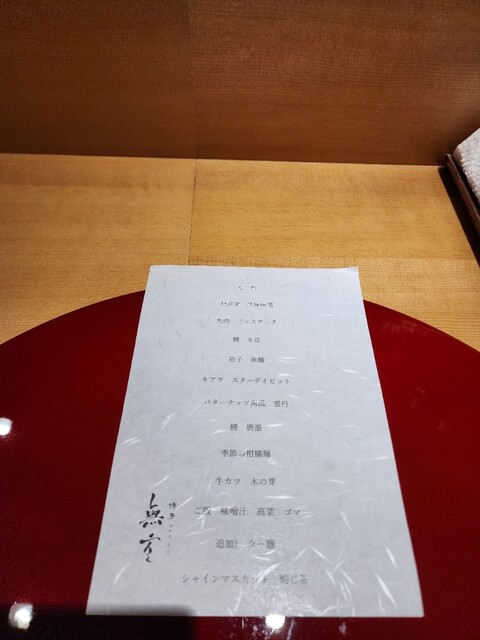 馬肉 ブルスケッタ
鱧 冬瓜
キアラ スターデイビット
バターナッツ南瓜 雲丹
鰻 唐墨
季節の柑橘麺
牛カツ 木の芽
ご飯 味噌汁 高菜 ゴマ
追加) ラー麺
シャインマスカット 焙じ茶
博多
無